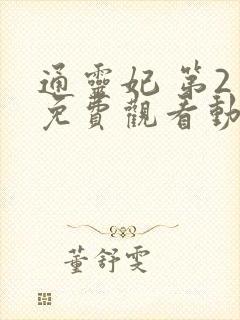 通靈妃 第2
免費觀看動
董舒雯